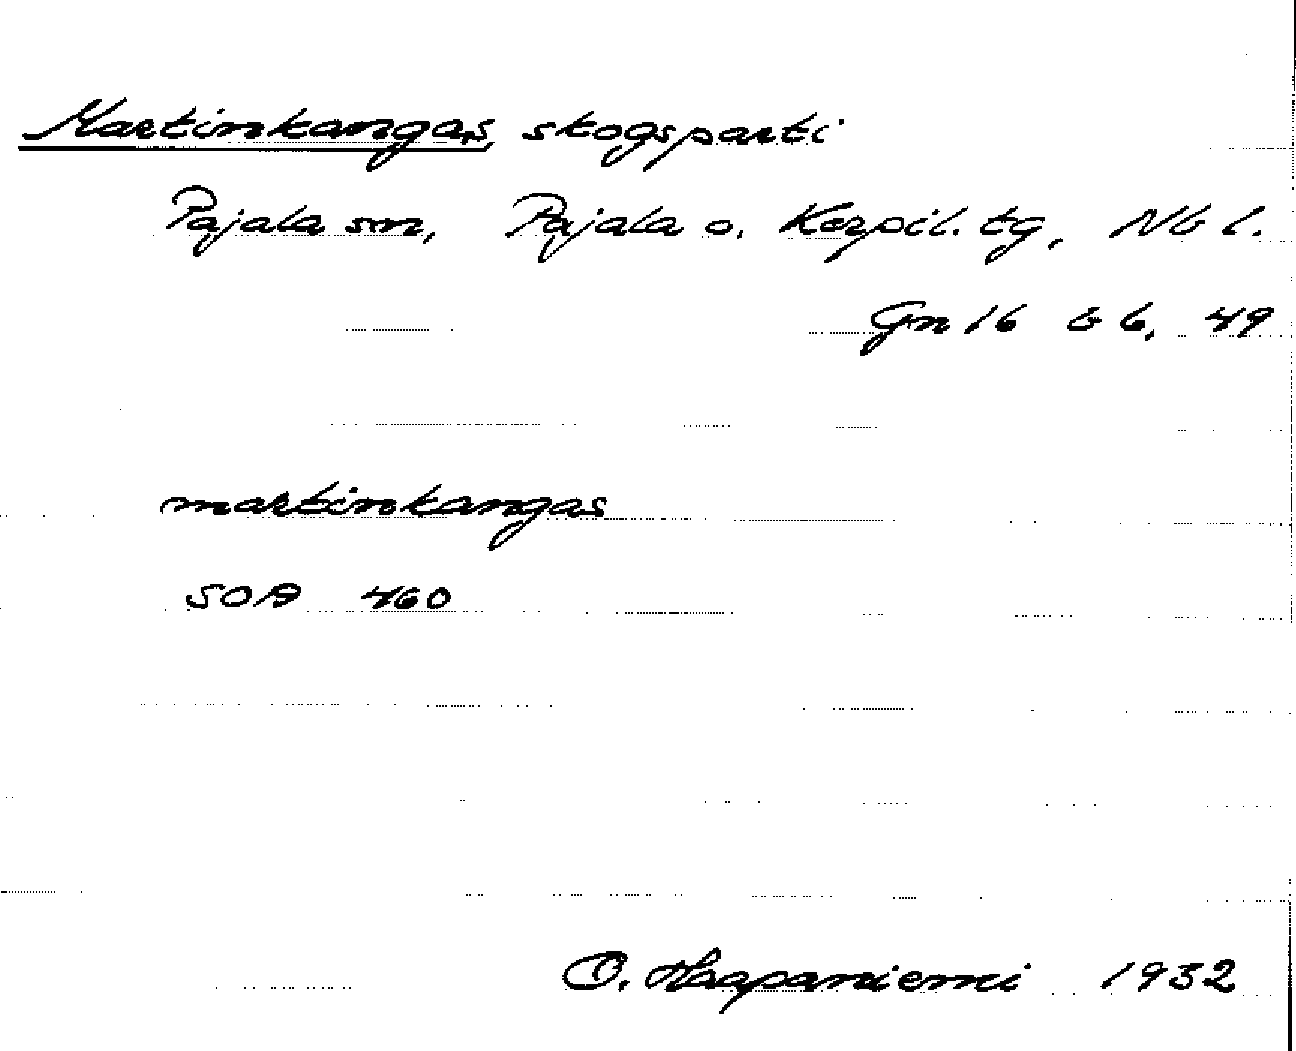 Martinkangas, skogsparti
Pajala sn, Pajala o. Korpil. tg, Nb l.
Gn 16 b 6, 49
martinkangas
SOA 460
O. Haapaniemi 1932